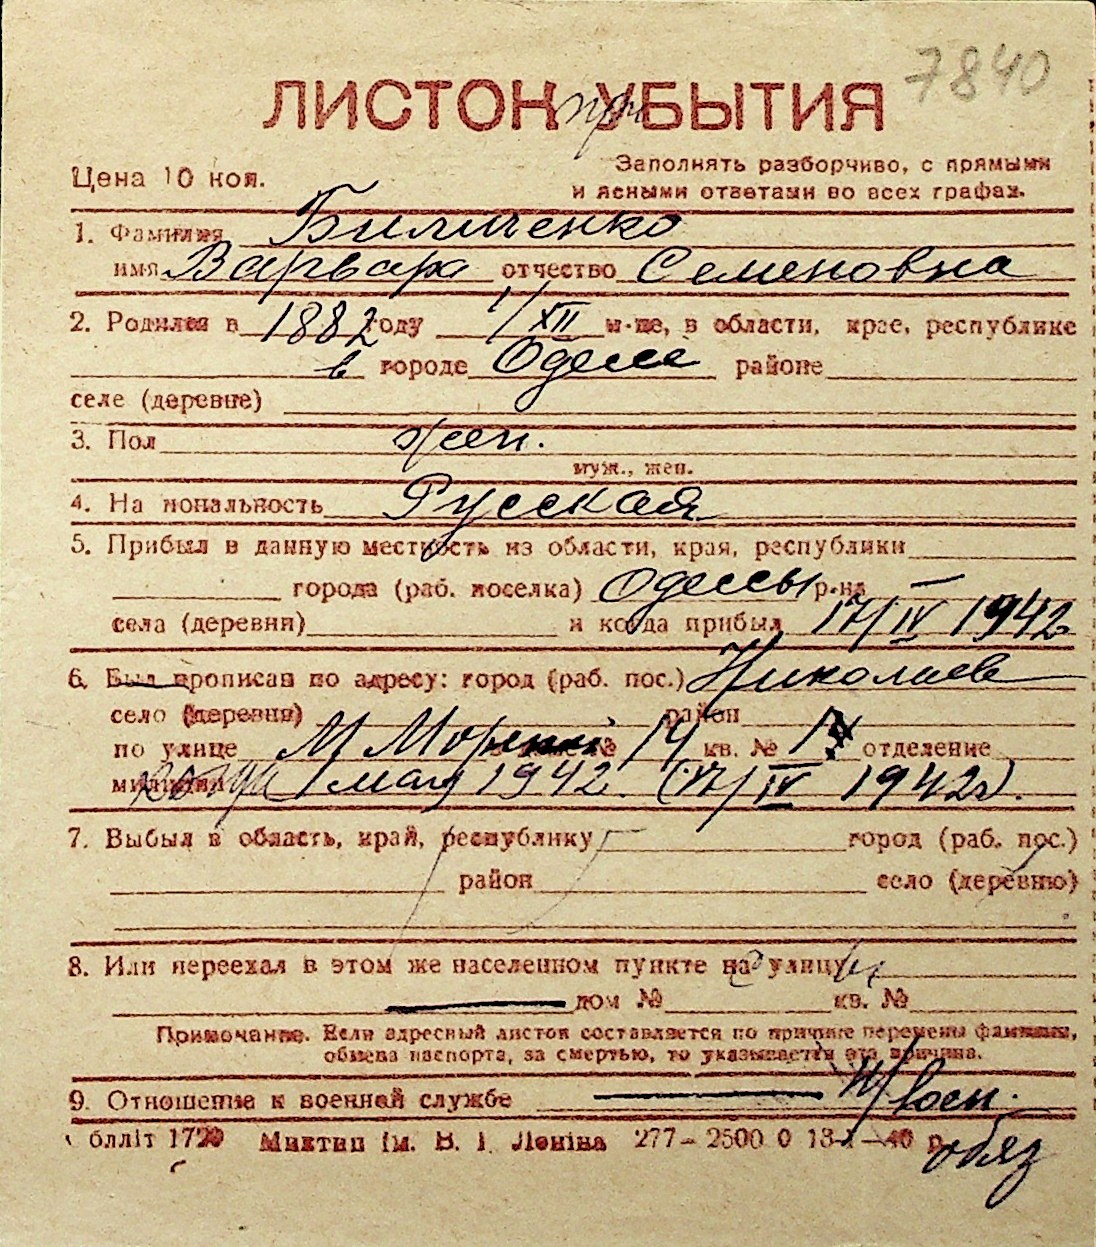 7840
ЛИСТОК при УБЫТИЯ
Цена 10 коп.
Заполнять разборчиво, с прямыми
и ясными ответами во всех графах.
1. Фамилия Биличенко
имя Варвара отчество Семеновна
2. Родился в 1882 году 1/XII м-це, в области, крае, республике
в городе Одессе районе
селе (деревне)
3. Пол жен.
муж., жен.
4. Национальность Русская
5. Прибыл в данную местность из области, края, республики
города (раб. поселка) Одессы р-на
села (деревни) и когда прибыл 17/IV 1942
6. Был прописан по адресу: город (раб. пос.) Николаев
село (деревня) район
по улице М Морская № 14 кв. № отделение
милиции когда 1 мая 1942. (17/IV 1942г).
7. Выбыл в область, край, республику город (раб. пос.)
район село (деревню)
8. Или переехал в этом же населенном пункте на улицу
дом № кв. №
Примечание. Если адресный листок составляется по причине перемены фамилии,
обмена паспорта, за смертью, то указывается эта причина.
9. Отношение к военной службе н/воен.
обяз
бліт 1720 Миктип ім. В. І. Леніна 277—2500 0 13-X—40 р.